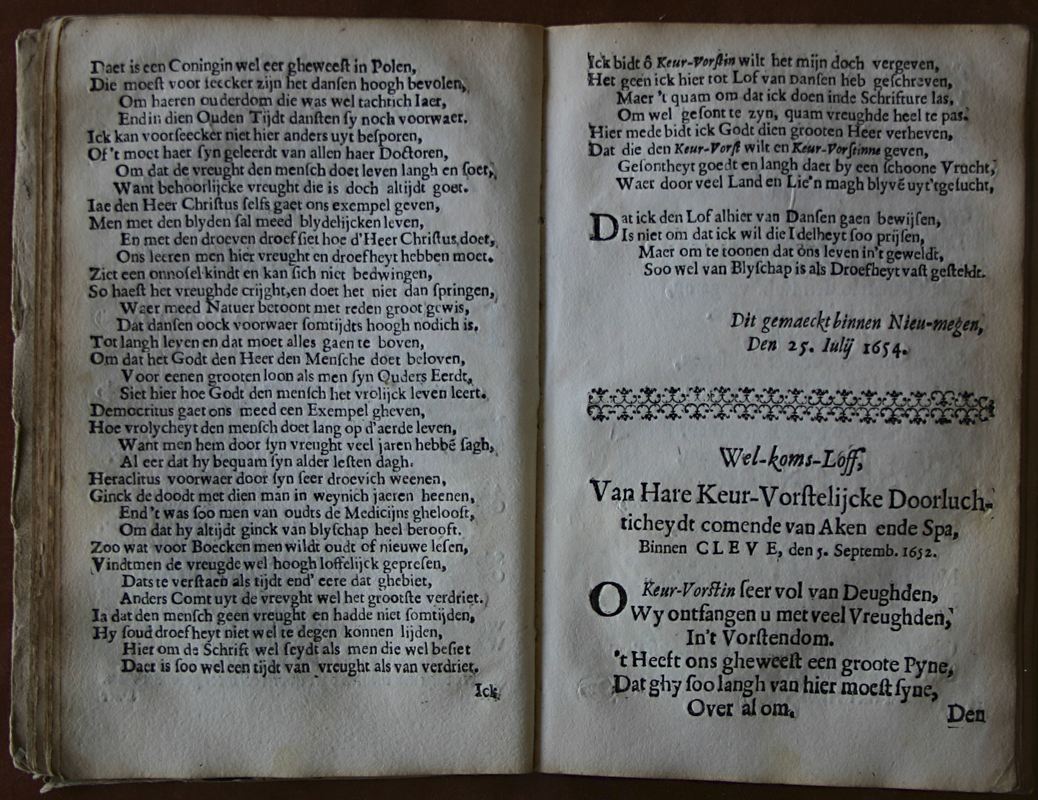 Daer is een Coningin wel eer gheweeſt in Polen,
Die moeſt voor ſeecker zijn het danſen hoogh bevolen,
Om haeren ouderdom die was wel tachtich Iaer,
End in dien Ouden Tijdt danſten ſy noch voorwaer.
Ick kan voorſeecker niet hier anders uyt beſporen,
Of 't moet haer ſyn geleerdt van allen haer Doctoren,
Om dat de vreught den menſch doet leven langh en ſoet,
Want behoorlijcke vreught die is doch altijdt goet.
Iae den Heer Chriſtus ſelfs gaet ons exempel geven,
Men met den blyden ſal meed blydelijcken leven,
En met den droeven droef ſiet hoe d'Heer Chriſtus doet,
Ons leeren men hier vreught en droefheyt hebben moet.
Ziet een onnoſel kindt en kan ſich niet bedwingen,
So haeſt het vreughde crijght, en doet het niet dan ſpringen,
Waer meed Natuer betoont met reden groot gewis,
Dat danſen oock voorwaer ſomtijdts hoogh nodich is.
Tot langh leven en dat moet alles gaen te boven,
Om dat het Godt den Heer den Menſche doet beloven,
Voor eenen grooten loon als men ſyn Ouders Eerdt,
Siet hier hoe Godt den menſch het vrolijck leven leert.
Democritus gaet ons meed een Exempel gheven,
Hoe vrolycheyt den menſch doet lang op d'aerde leven,
Want men hem door ſyn vreught veel jaren hebbē ſagh,
Al eer dat hy bequam ſyn alder leſten dagh.
Heraclitus voorwaer door ſyn ſeer droevich weenen,
Ginck de doodt met dien man in weynich jaeren heenen,
End 't was ſoo men van oudts de Medicijns ghelooft,
Om dat hy altijdt ginck van blyſchap heel berooft.
Zoo wat voor Boecken men wildt oudt of nieuwe leſen,
Vindtmen de vreugde wel hoogh loffelijck gepreſen,
Dats te verſtaen als tijdt end' eere dat ghebiet,
Anders Comt uyt de vrevght wel het grootſte verdriet.
Ia dat den menſch geen vreught en hadde niet ſomtijden,
Hy ſoud droefheyt niet wel te degen konnen lijden,
Hier om de Schrift wel ſeydt als men die wel beſiet
Daer is ſoo wel een tijdt van vreught als van verdriet.
Ick
Ick bidt ô Keur-Vorſtin wilt het mijn doch vergeven,
Het geen ick hier tot Lof van Danſen heb geſchreven,
Maer 't quam om dat ick doen inde Schrifture las,
Om wel geſont te zyn, quam vreughde heel te pas.
Hier mede bidt ick Godt dien grooten Heer verheven,
Dat die den Keur-Vorſt wilt en Keur-Vorſtinne geven,
Geſontheyt goedt en langh daer by een ſchoone Vrucht,
Waer door veel Land en Lie'n magh blyvē uyt'tgeſucht,
Dat ick den Lof alhier van Danſen gaen bewijſen,
Is niet om dat ick wil die Idelheyt ſoo prijſen,
Maer om te toonen dat ons leven in't geweldt,
Soo wel van Blyſchap is als Droefheyt vaſt geſteldt.
Dit gemaeckt binnen Nieu-megen,
Den 25. Iulij 1654.
Wel-koms-Loff,
Van Hare Keur-Vorſtelijcke Doorluch-
ticheydt comende van Aken ende Spa,
Binnen CLEVE, den 5. Septemb. 1652.
O Keur-Vorſtin ſeer vol van Deughden,
Wy ontfangen u met veel Vreughden,
In't Vorſtendom.
't Heeft ons gheweeſt een groote Pyne,
Dat ghy ſoo langh van hier moeſt ſyne,
Over al om.
Den